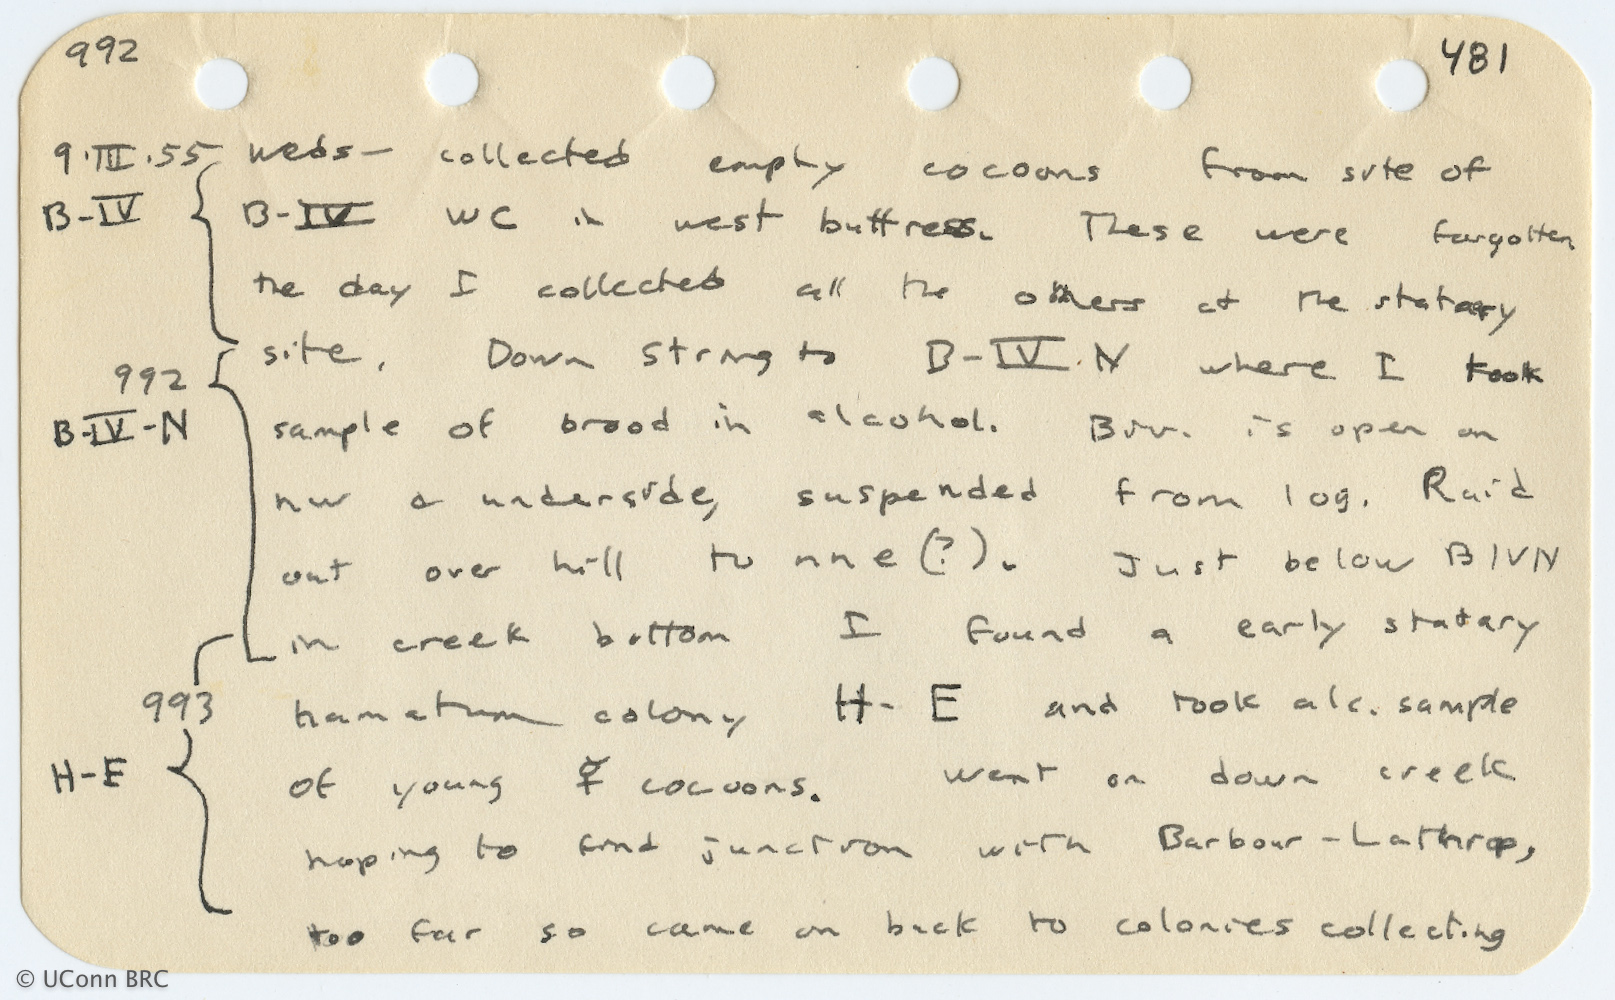 992 481
9·III·55 Weds- collected empty cocoons from site of
B-IV B-IV WC in west buttress. These were forgotten
the day I collected all the others at the statary
site. Down string to B-IV.N where I took
992
B-IV-N sample of brood in alcohol. Biv. is open on
nw & underside, suspended from log. Raid
out over hill to nne (?). Just below BIVN
in creek bottom I found a early statary
993 hamatum colony H-E and took alc. sample
H-E of young ☿ cocoons. Went on down creek
hoping to find junction with Barbour-Lathrop,
too far so came on back to colonies collecting
© UConn BRC